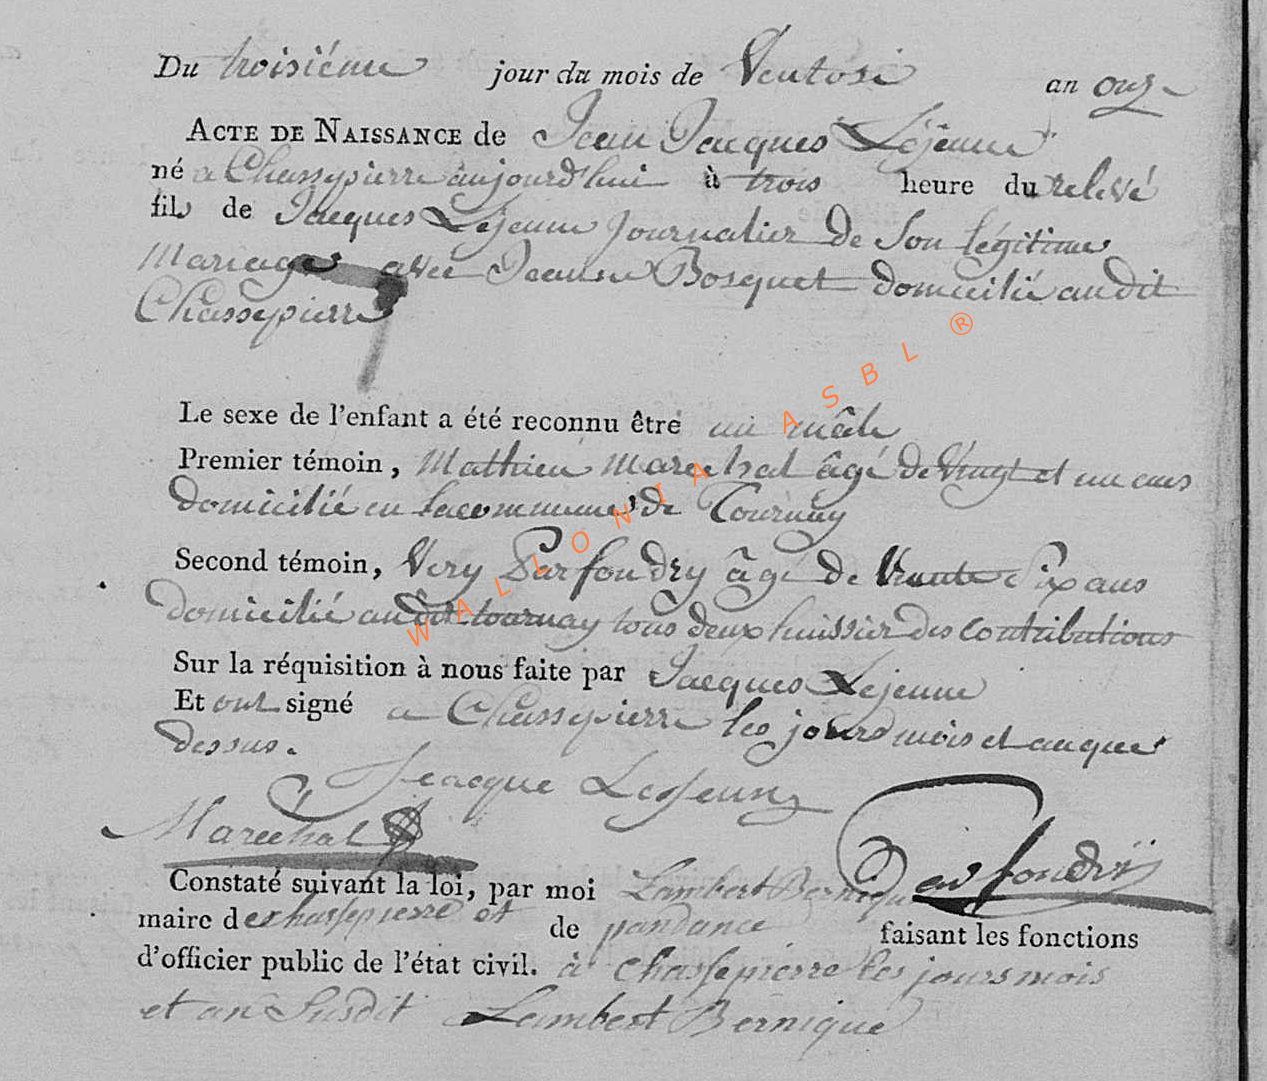 Du troisiéme jour du mois de Ventose an onze
ACTE DE NAISSANCE de Jean Jacques Lejeune
né a Chassepierre aujourd'hui à trois heure du relevé
fils de Jacques Lejeune Journalier de Son légitime
Mariage avec Jeanne Bosquet domicilié audit
Chassepierre
Le sexe de l'enfant a été reconnu être un mâle
Premier témoin, Mathieu Marechal âgé de Vingt et un ans
domicilié en la commune de Tournay
Second témoin, Very Parfondry âgé de trente Six ans
domicilié audit tournay tous deux huissier des contributions
Sur la réquisition à nous faite par Jacques Lejeune
Et ont signé a Chassepierre les jours mois et an que
dessus.
Jeacque LesJeune
Marechal Parfondrÿ
Constaté suivant la loi, par moi Lambert Bernique
maire de chassepierre et de pandance faisant les fonctions
d'officier public de l'état civil. à chassepierre les jours mois
et an Susdit Lambert Bernique
WALLONIA ASBL ®